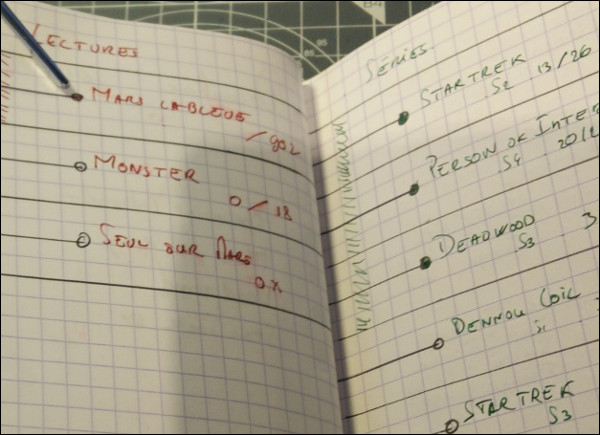 LECTURES
MARS LA BLEUE
/ 902
MONSTER
0 / 18
SEUL SUR MARS
0 X
SÉRIES
STARTREK
S2 13/26
PERSON OF INTER
S4 20/2
DEADWOOD
S3 3
DENNOU COIL
STARTREK
S3
85